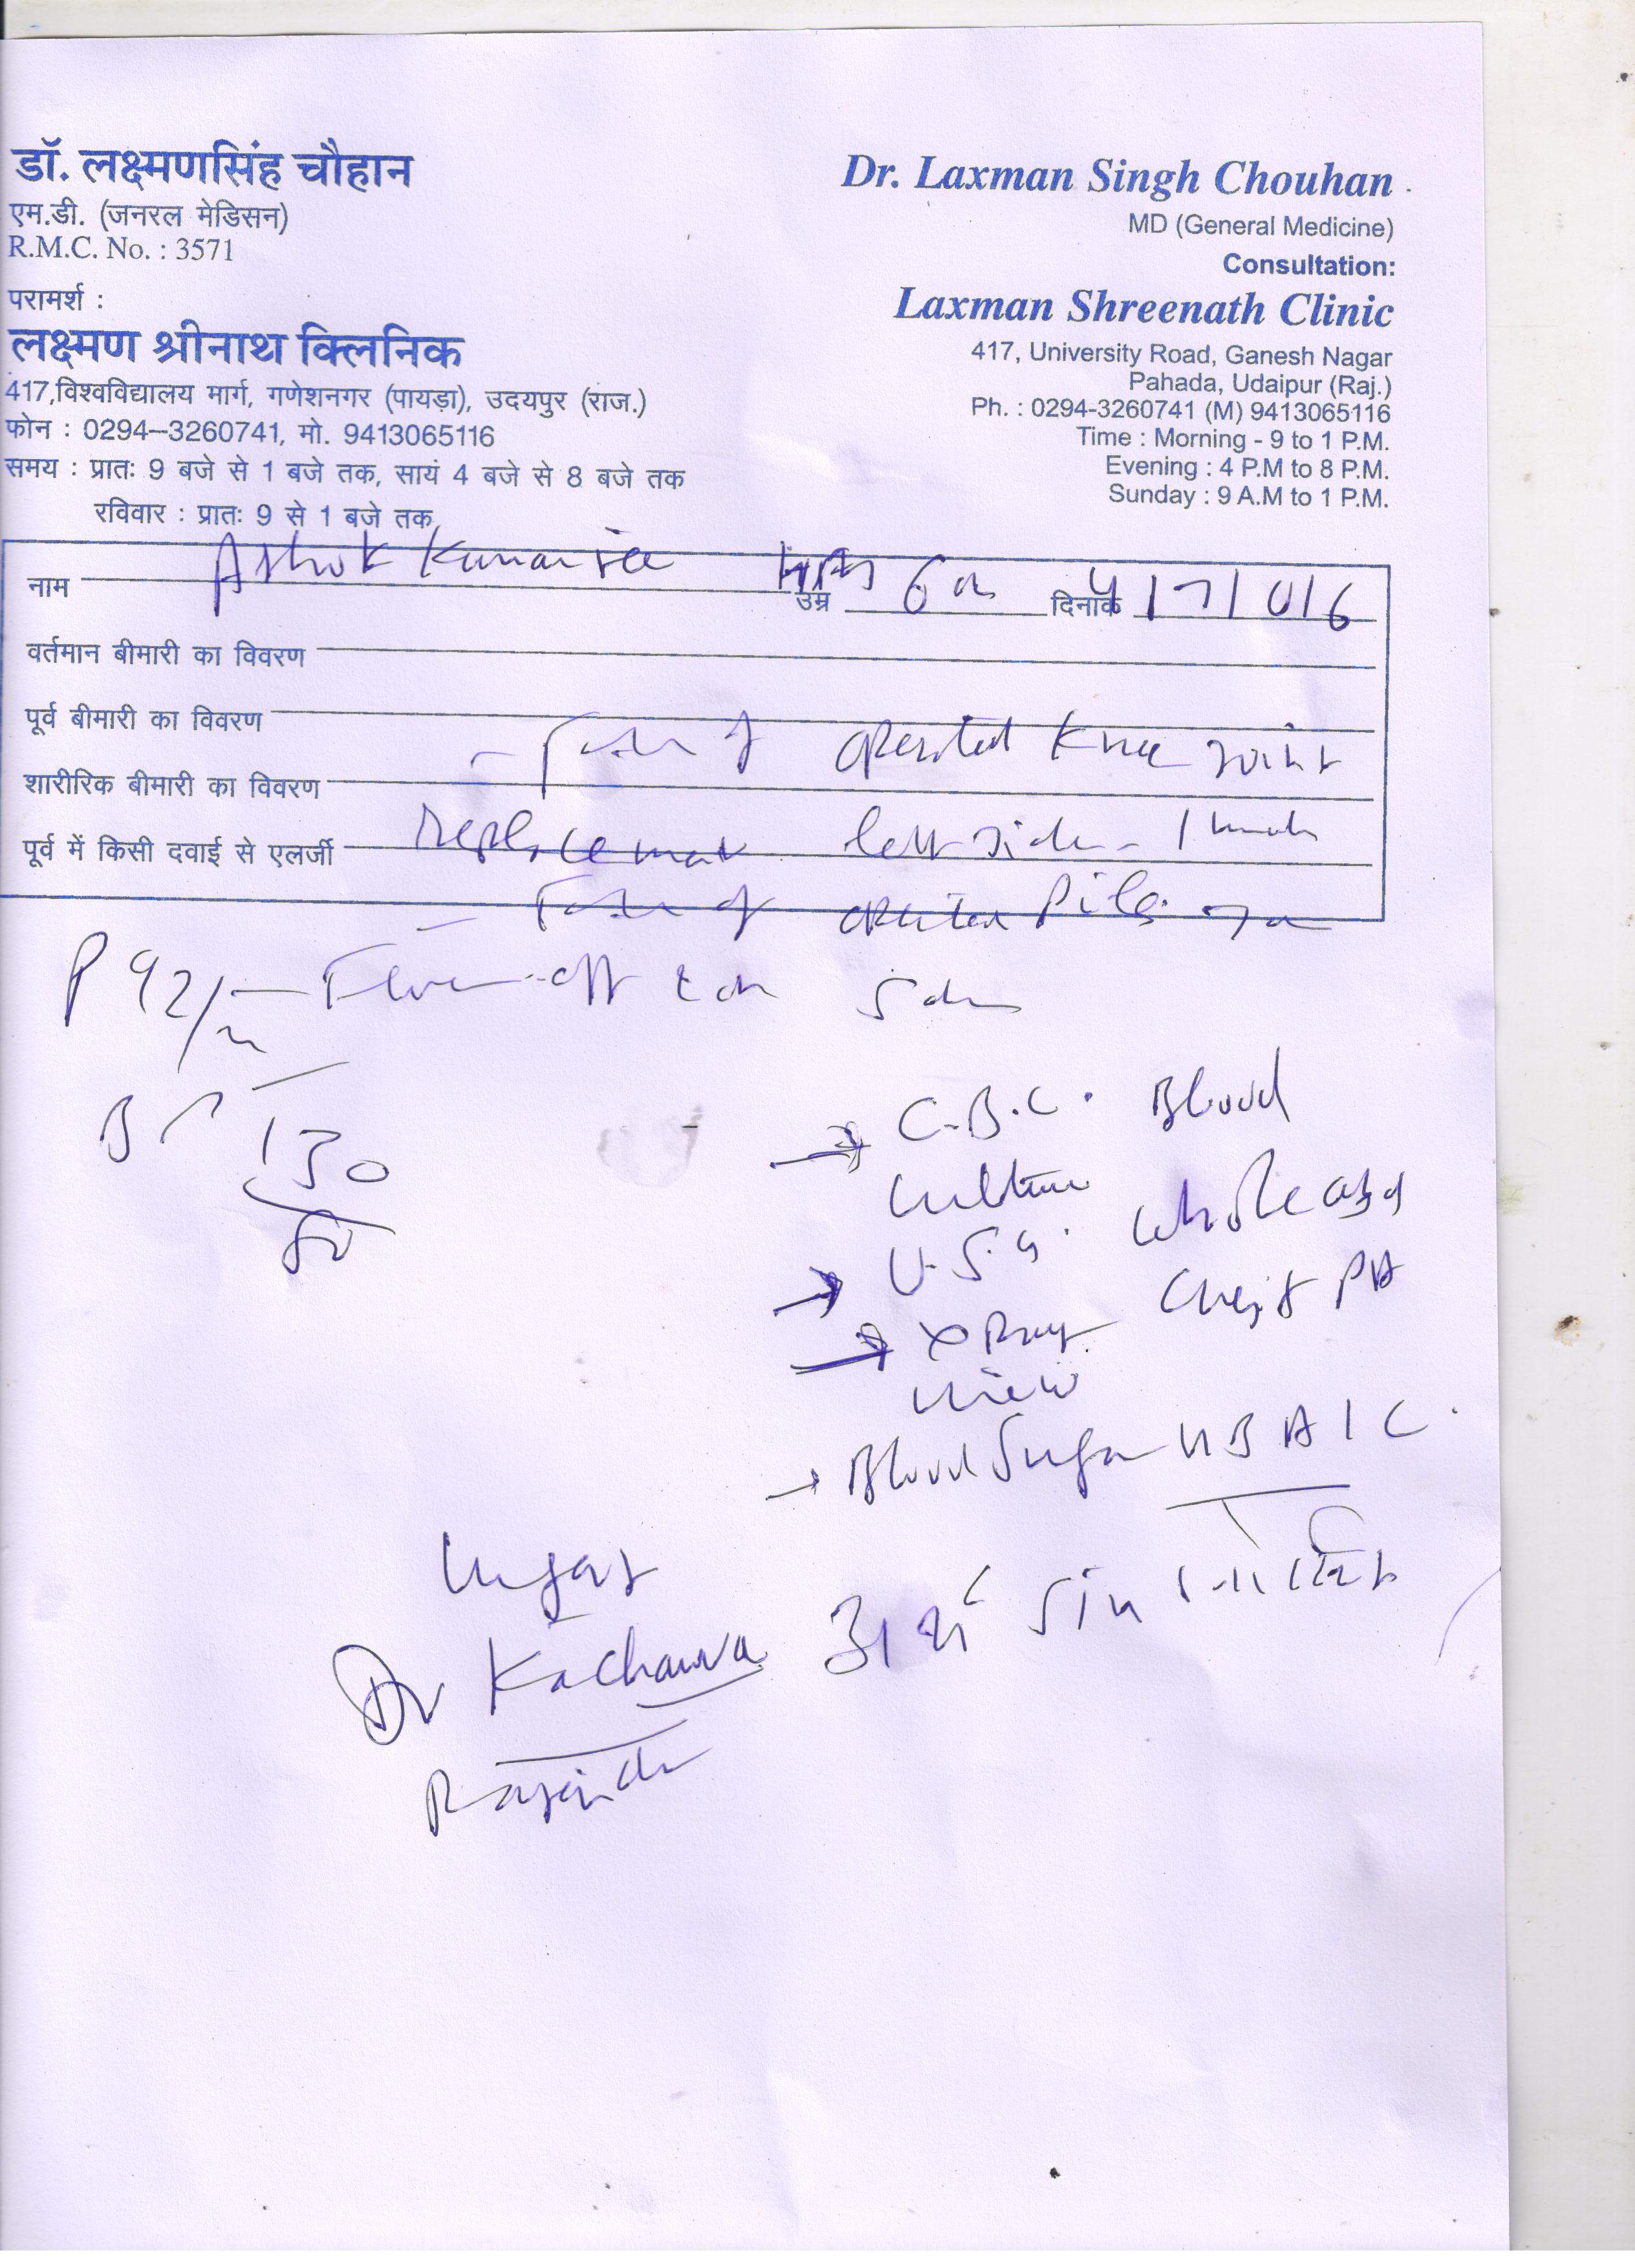 डॉ. लक्ष्मणसिंह चौहान
एम.डी. (जनरल मेडिसन)
R.M.C. No. : 3571
परामर्श :
लक्ष्मण श्रीनाथ क्लिनिक
417,विश्वविद्यालय मार्ग, गणेशनगर (पायड़ा), उदयपुर (राज.)
फोन : 0294–3260741, मो. 9413065116
समय : प्रातः 9 बजे से 1 बजे तक, सायं 4 बजे से 8 बजे तक
रविवार : प्रातः 9 से 1 बजे तक
Dr. Laxman Singh Chouhan
MD (General Medicine)
Consultation:
Laxman Shreenath Clinic
417, University Road, Ganesh Nagar
Pahada, Udaipur (Raj.)
Ph. : 0294-3260741 (M) 9413065116
Time : Morning - 9 to 1 P.M.
Evening : 4 P.M to 8 P.M.
Sunday : 9 A.M to 1 P.M.
नाम Ashok Kumar उम्र दिनांक 4/7/016
वर्तमान बीमारी का विवरण
पूर्व बीमारी का विवरण
operated Knee Joint
शारीरिक बीमारी का विवरण
Replacement left side - 1
पूर्व में किसी दवाई से एलर्जी
operated Piles
P 92/m Fever off
BP 130
80
→ C.B.C. Blood
Culture
→ U.S.G. Whole abd
→ X Ray Chest PA
View
→ Blood Sugar HBA1C.
Urgent
Dr Kachawa